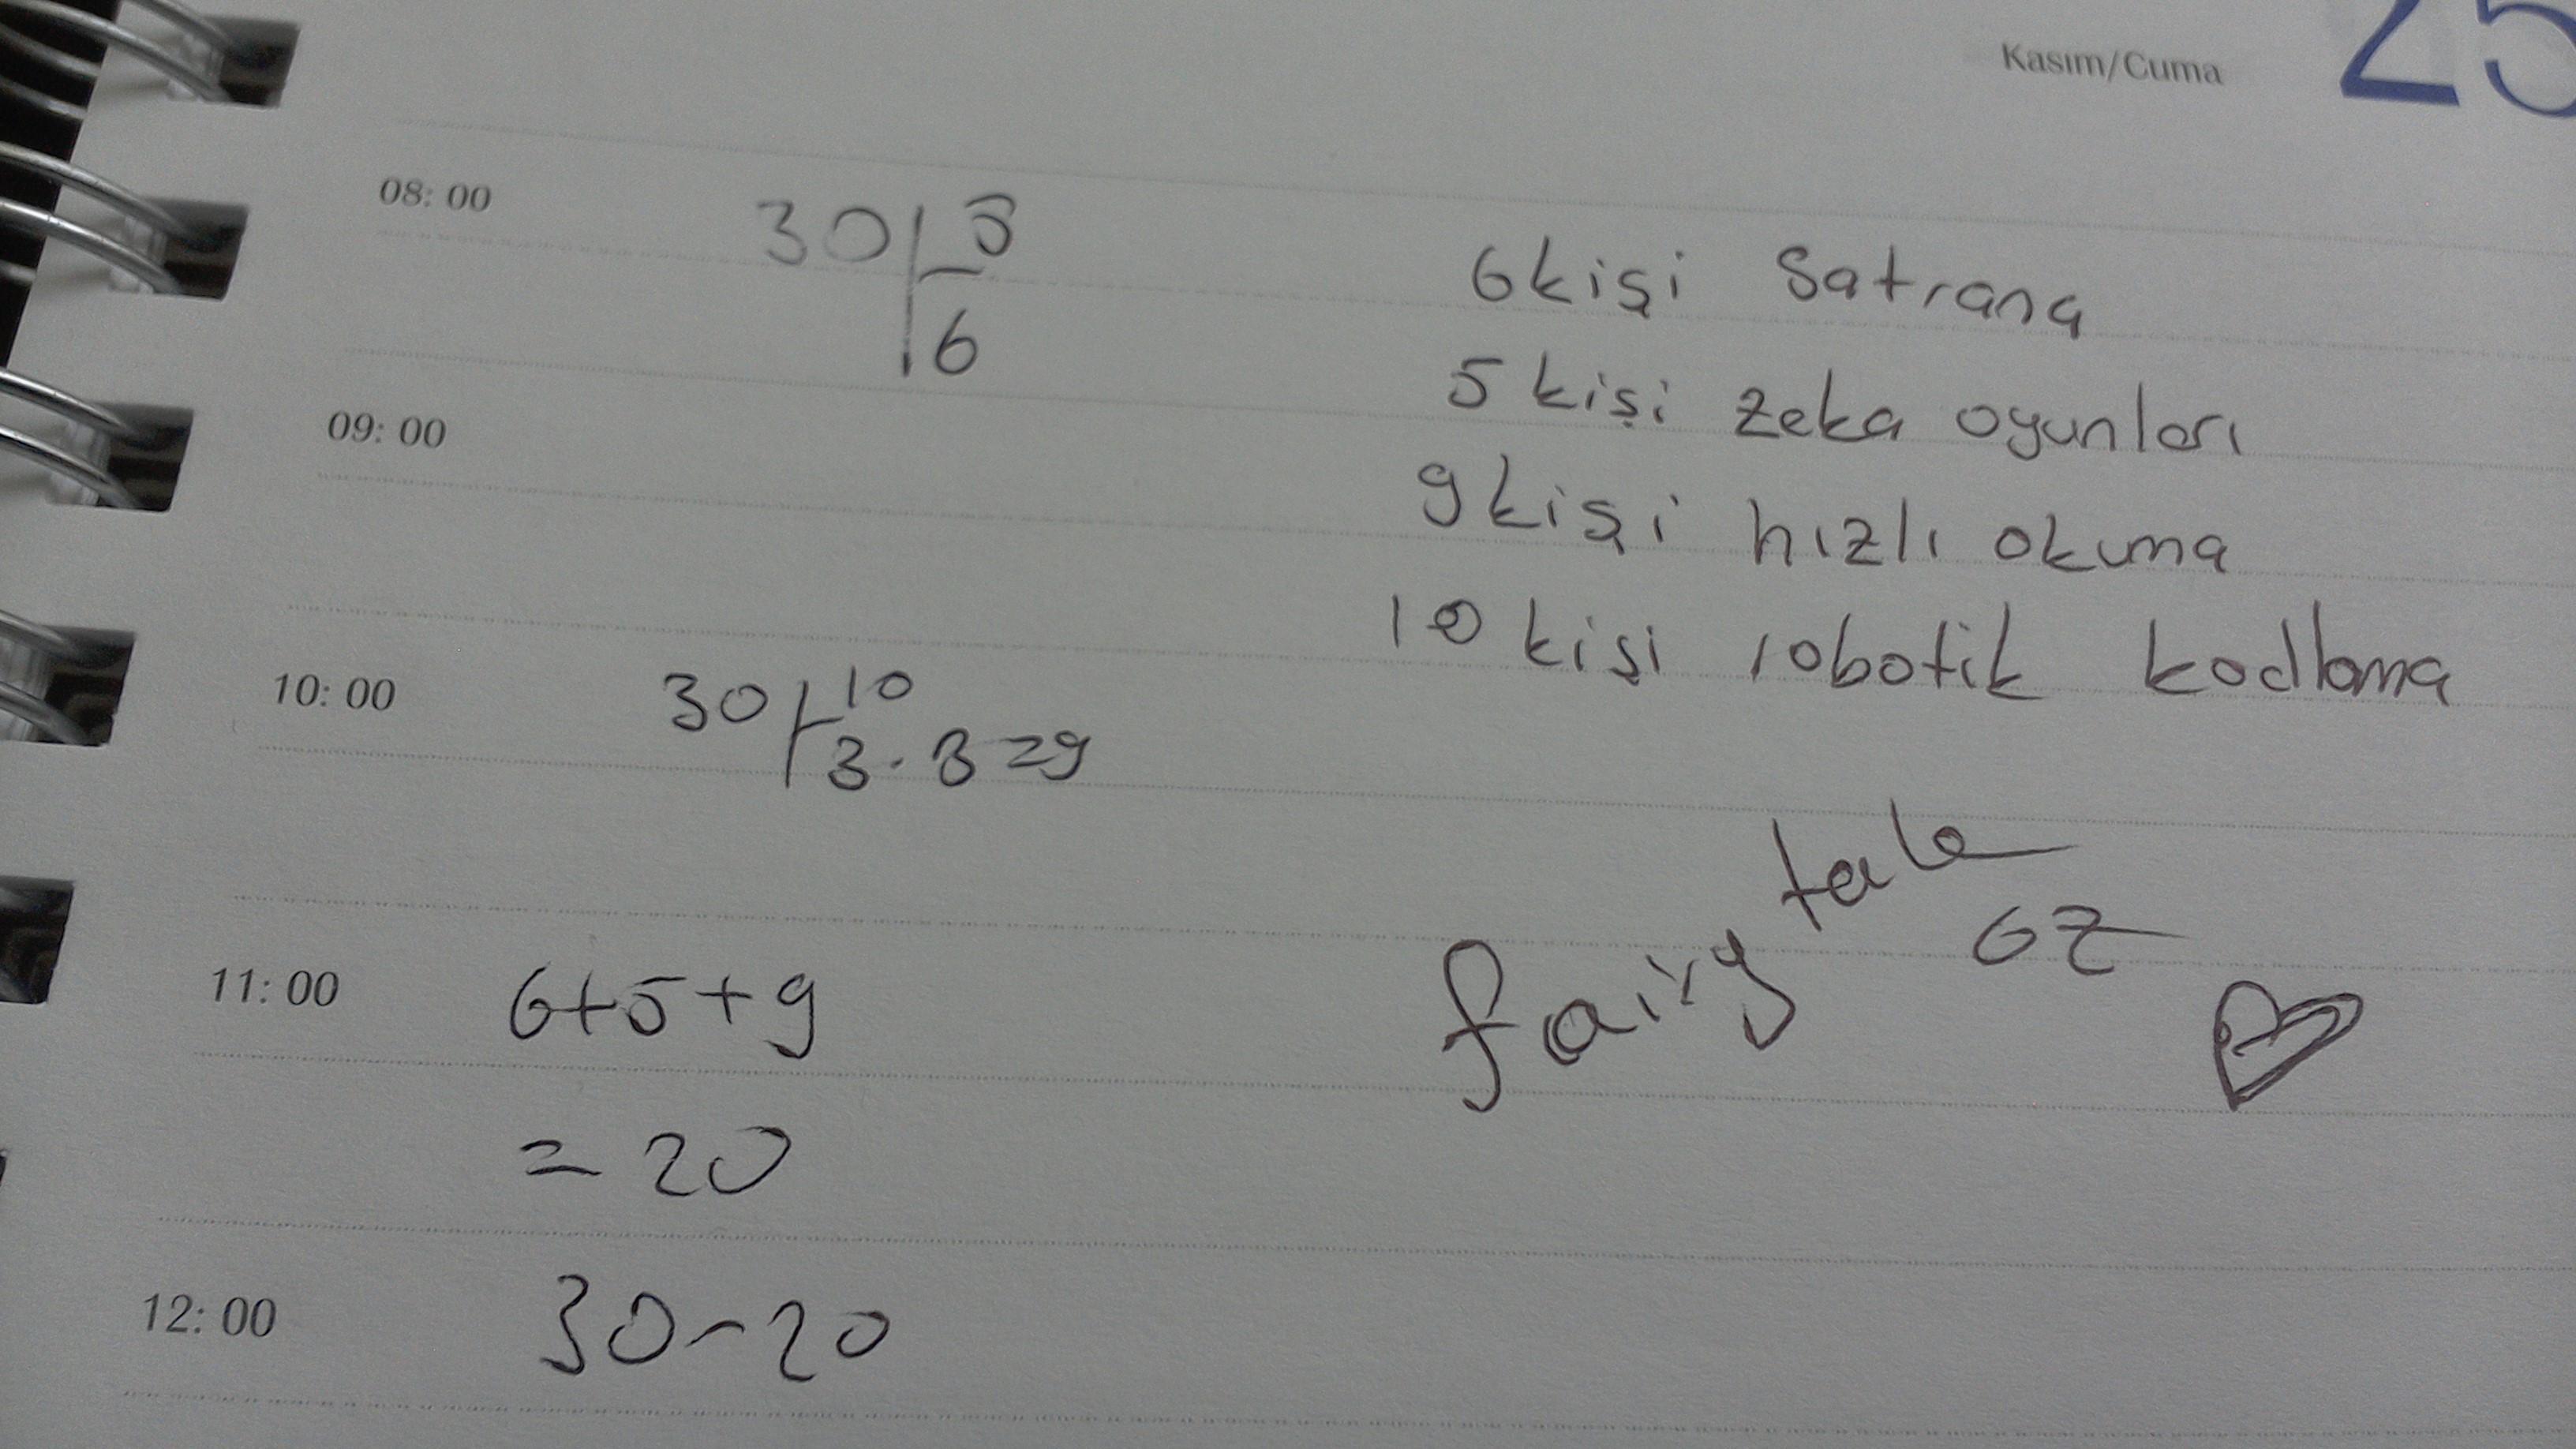 Kasım/Cuma 25
08: 00
30 5
6
6 kişi Satranç
5 kişi zeka oyunları
09: 00
9 kişi hızlı okuma
10 kişi robotik kodlama
10: 00
30 10
3 . 3 = 9
fairy tale
oz
11: 00
6+5+9
= 20
12: 00
30-20